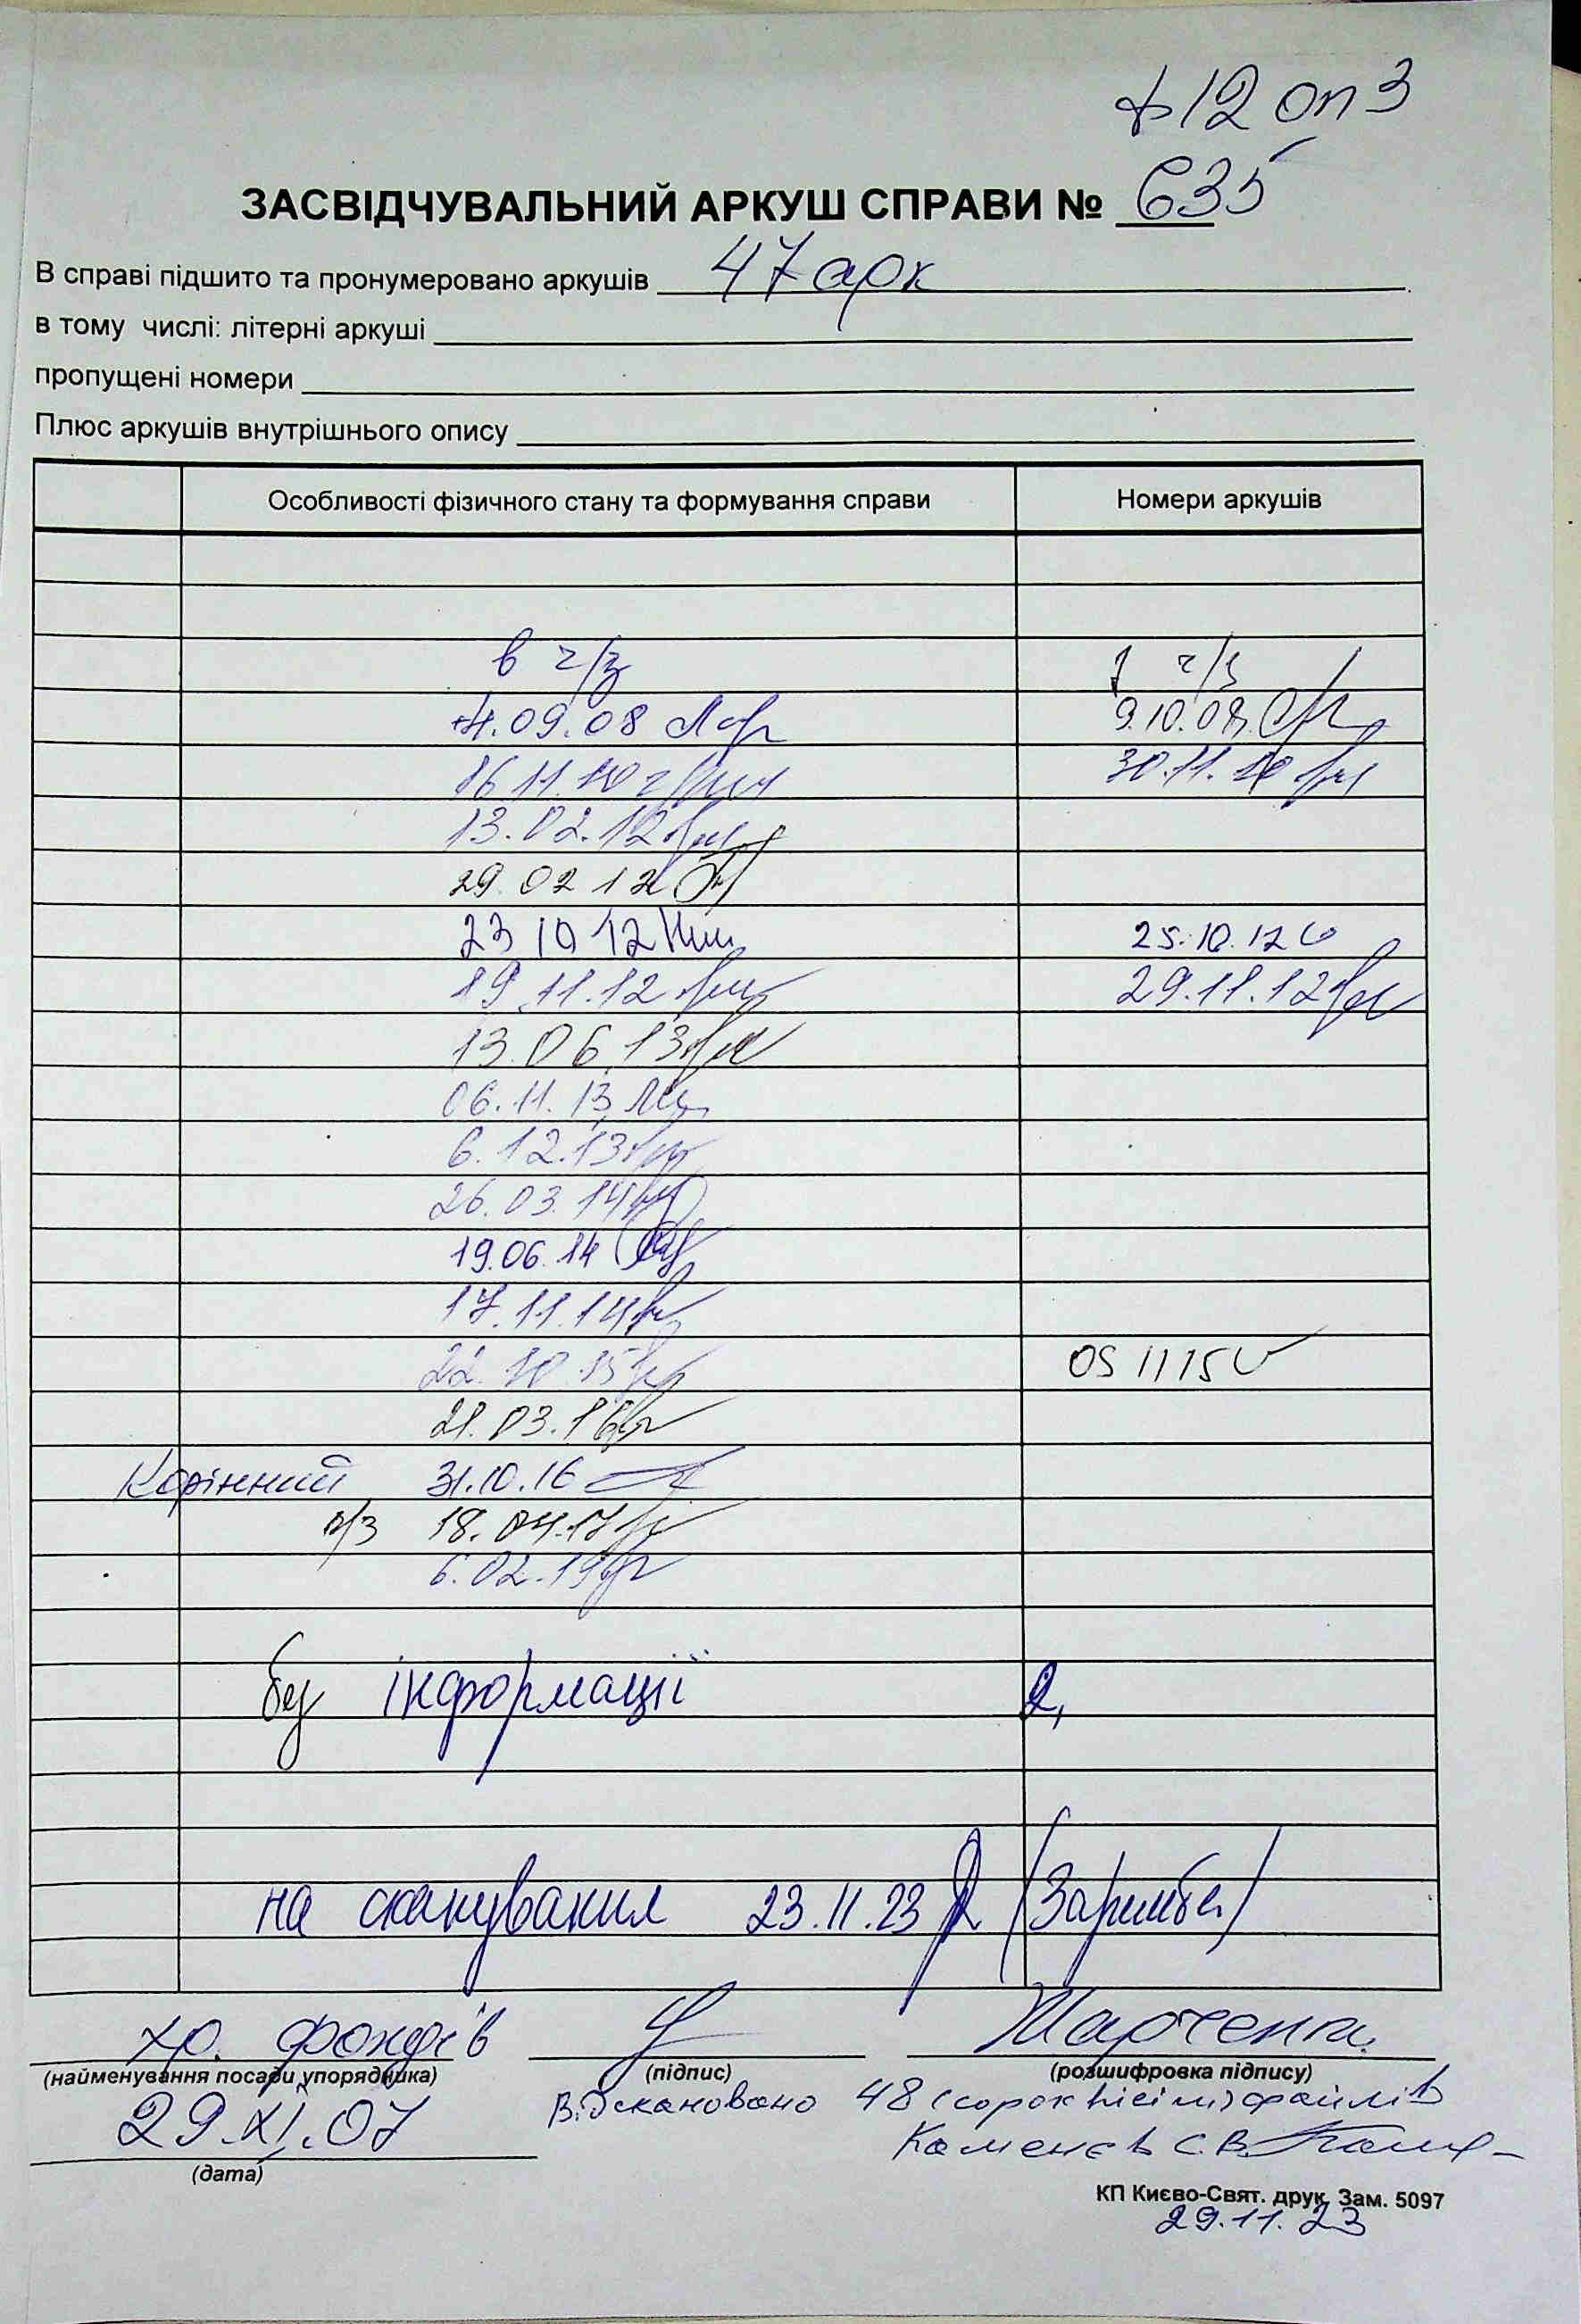 ф 12 оп 3
ЗАСВІДЧУВАЛЬНИЙ АРКУШ СПРАВИ № 635
В справі підшито та пронумеровано аркушів 47 арк
в тому числі: літерні аркуші
пропущені номери
Плюс аркушів внутрішнього опису
Особливості фізичного стану та формування справи Номери аркушів
в ч/з ч/з
4.09.08 9.10.08
16 11.10 30.11.10
13.02.12
29.02 12
23 10 12 25.10.12
19.11.12 29.11.12
13.06.13
06.11.13
6.12.13
26.03.14
19.06.14
17.11.14
22.10.15 05 11 15
21.03.16
Корінний 31.10.16
18.04.17
6.02.19
без інформації 2,
на сканування 23.11.23 (Заримба)
хр. фондів Марченко
(найменування посади упорядника) (підпис) (розшифровка підпису)
29.XI.07 Відскановано 48 (сорок вісім) файлів
Каменєв С.В.
(дата)
КП Києво-Свят. друк. Зам. 5097
29.11.23